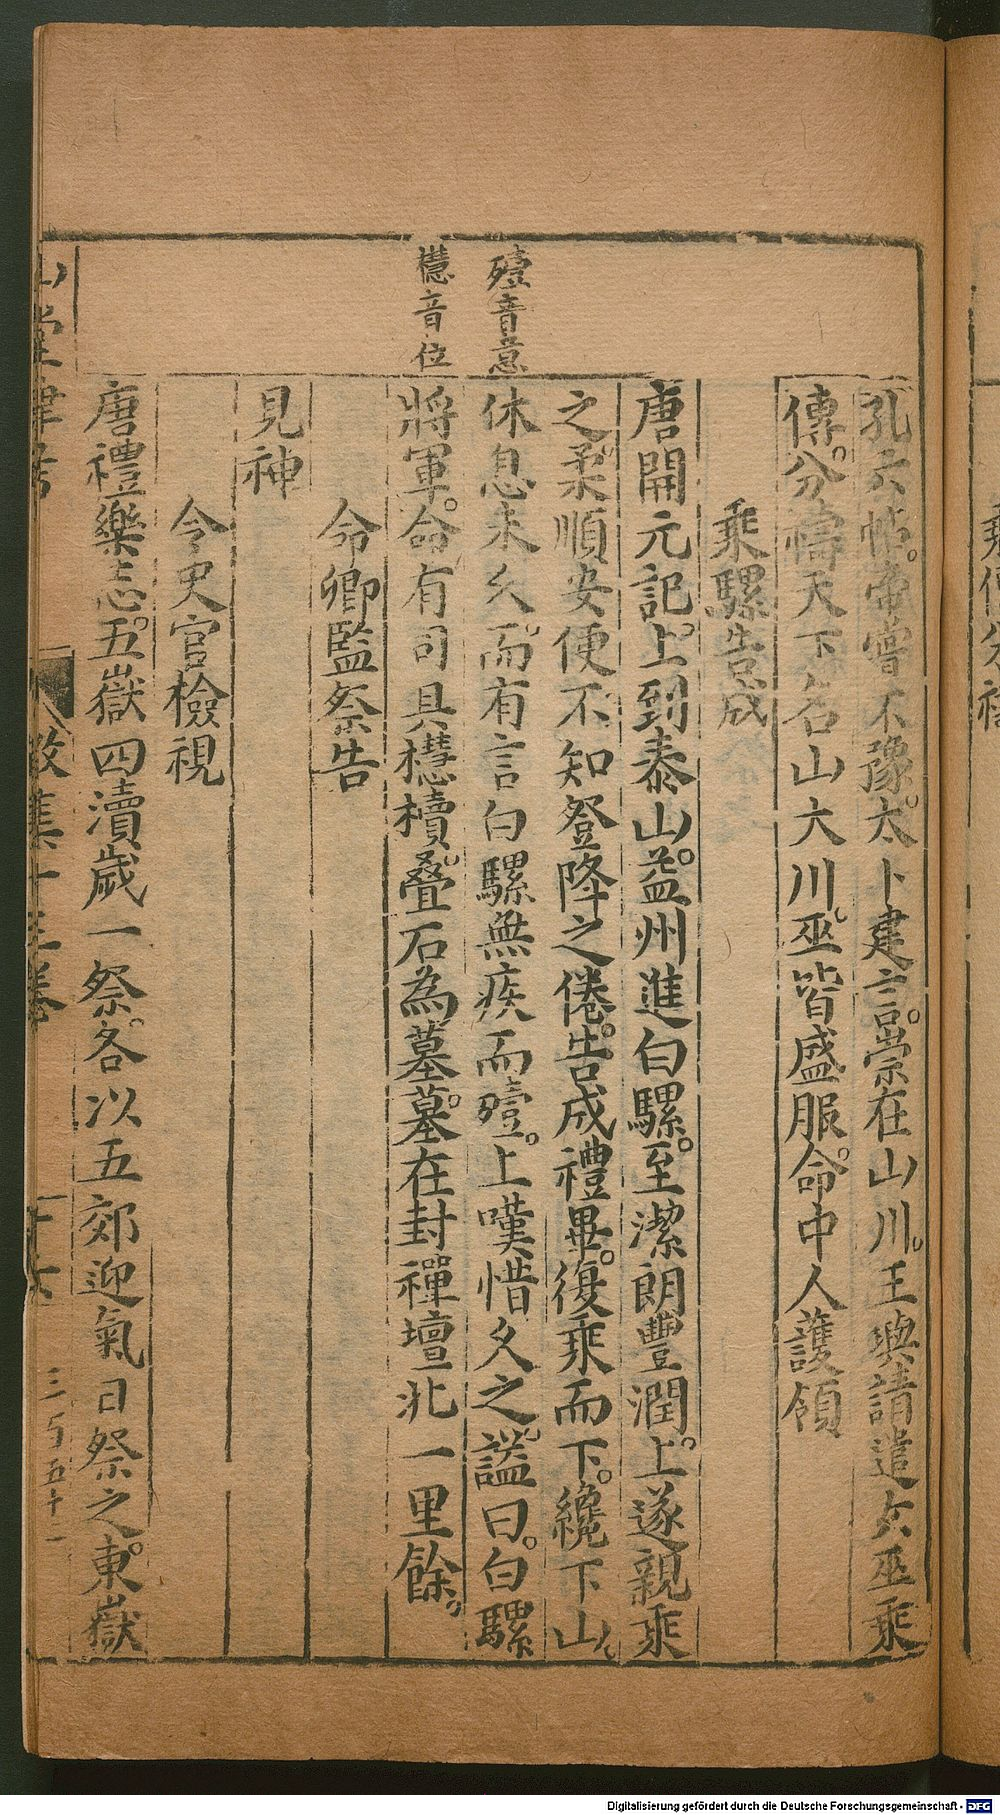 孔六帖。帝嘗不豫。太卜建言。祟在山川。王璵請遣女巫乘
傳。分禱天下名山大川。巫皆盛服。命中人護領
乘騾告成
唐開元記。上到泰山。益州進白騾。至潔朗豐潤。上遂親乘
之。柔順安便。不知登降之倦。告成禮畢。復乘而下。纔下山。
休息未久。而有言白騾無疾而殪。上嘆惜久之。謚曰。白騾
將軍。命有司具櫘櫝。疊石為墓。墓在封禪壇北一里餘。
殪音意
櫘音位
命卿監祭告
見神
令史官檢視
唐禮樂志。五嶽四瀆歲一祭。各以五郊迎氣日祭之。東嶽
山堂肆考
十三卷
三百五十二
Digitalisierung gefördert durch die Deutsche Forschungsgemeinschaft - DFG